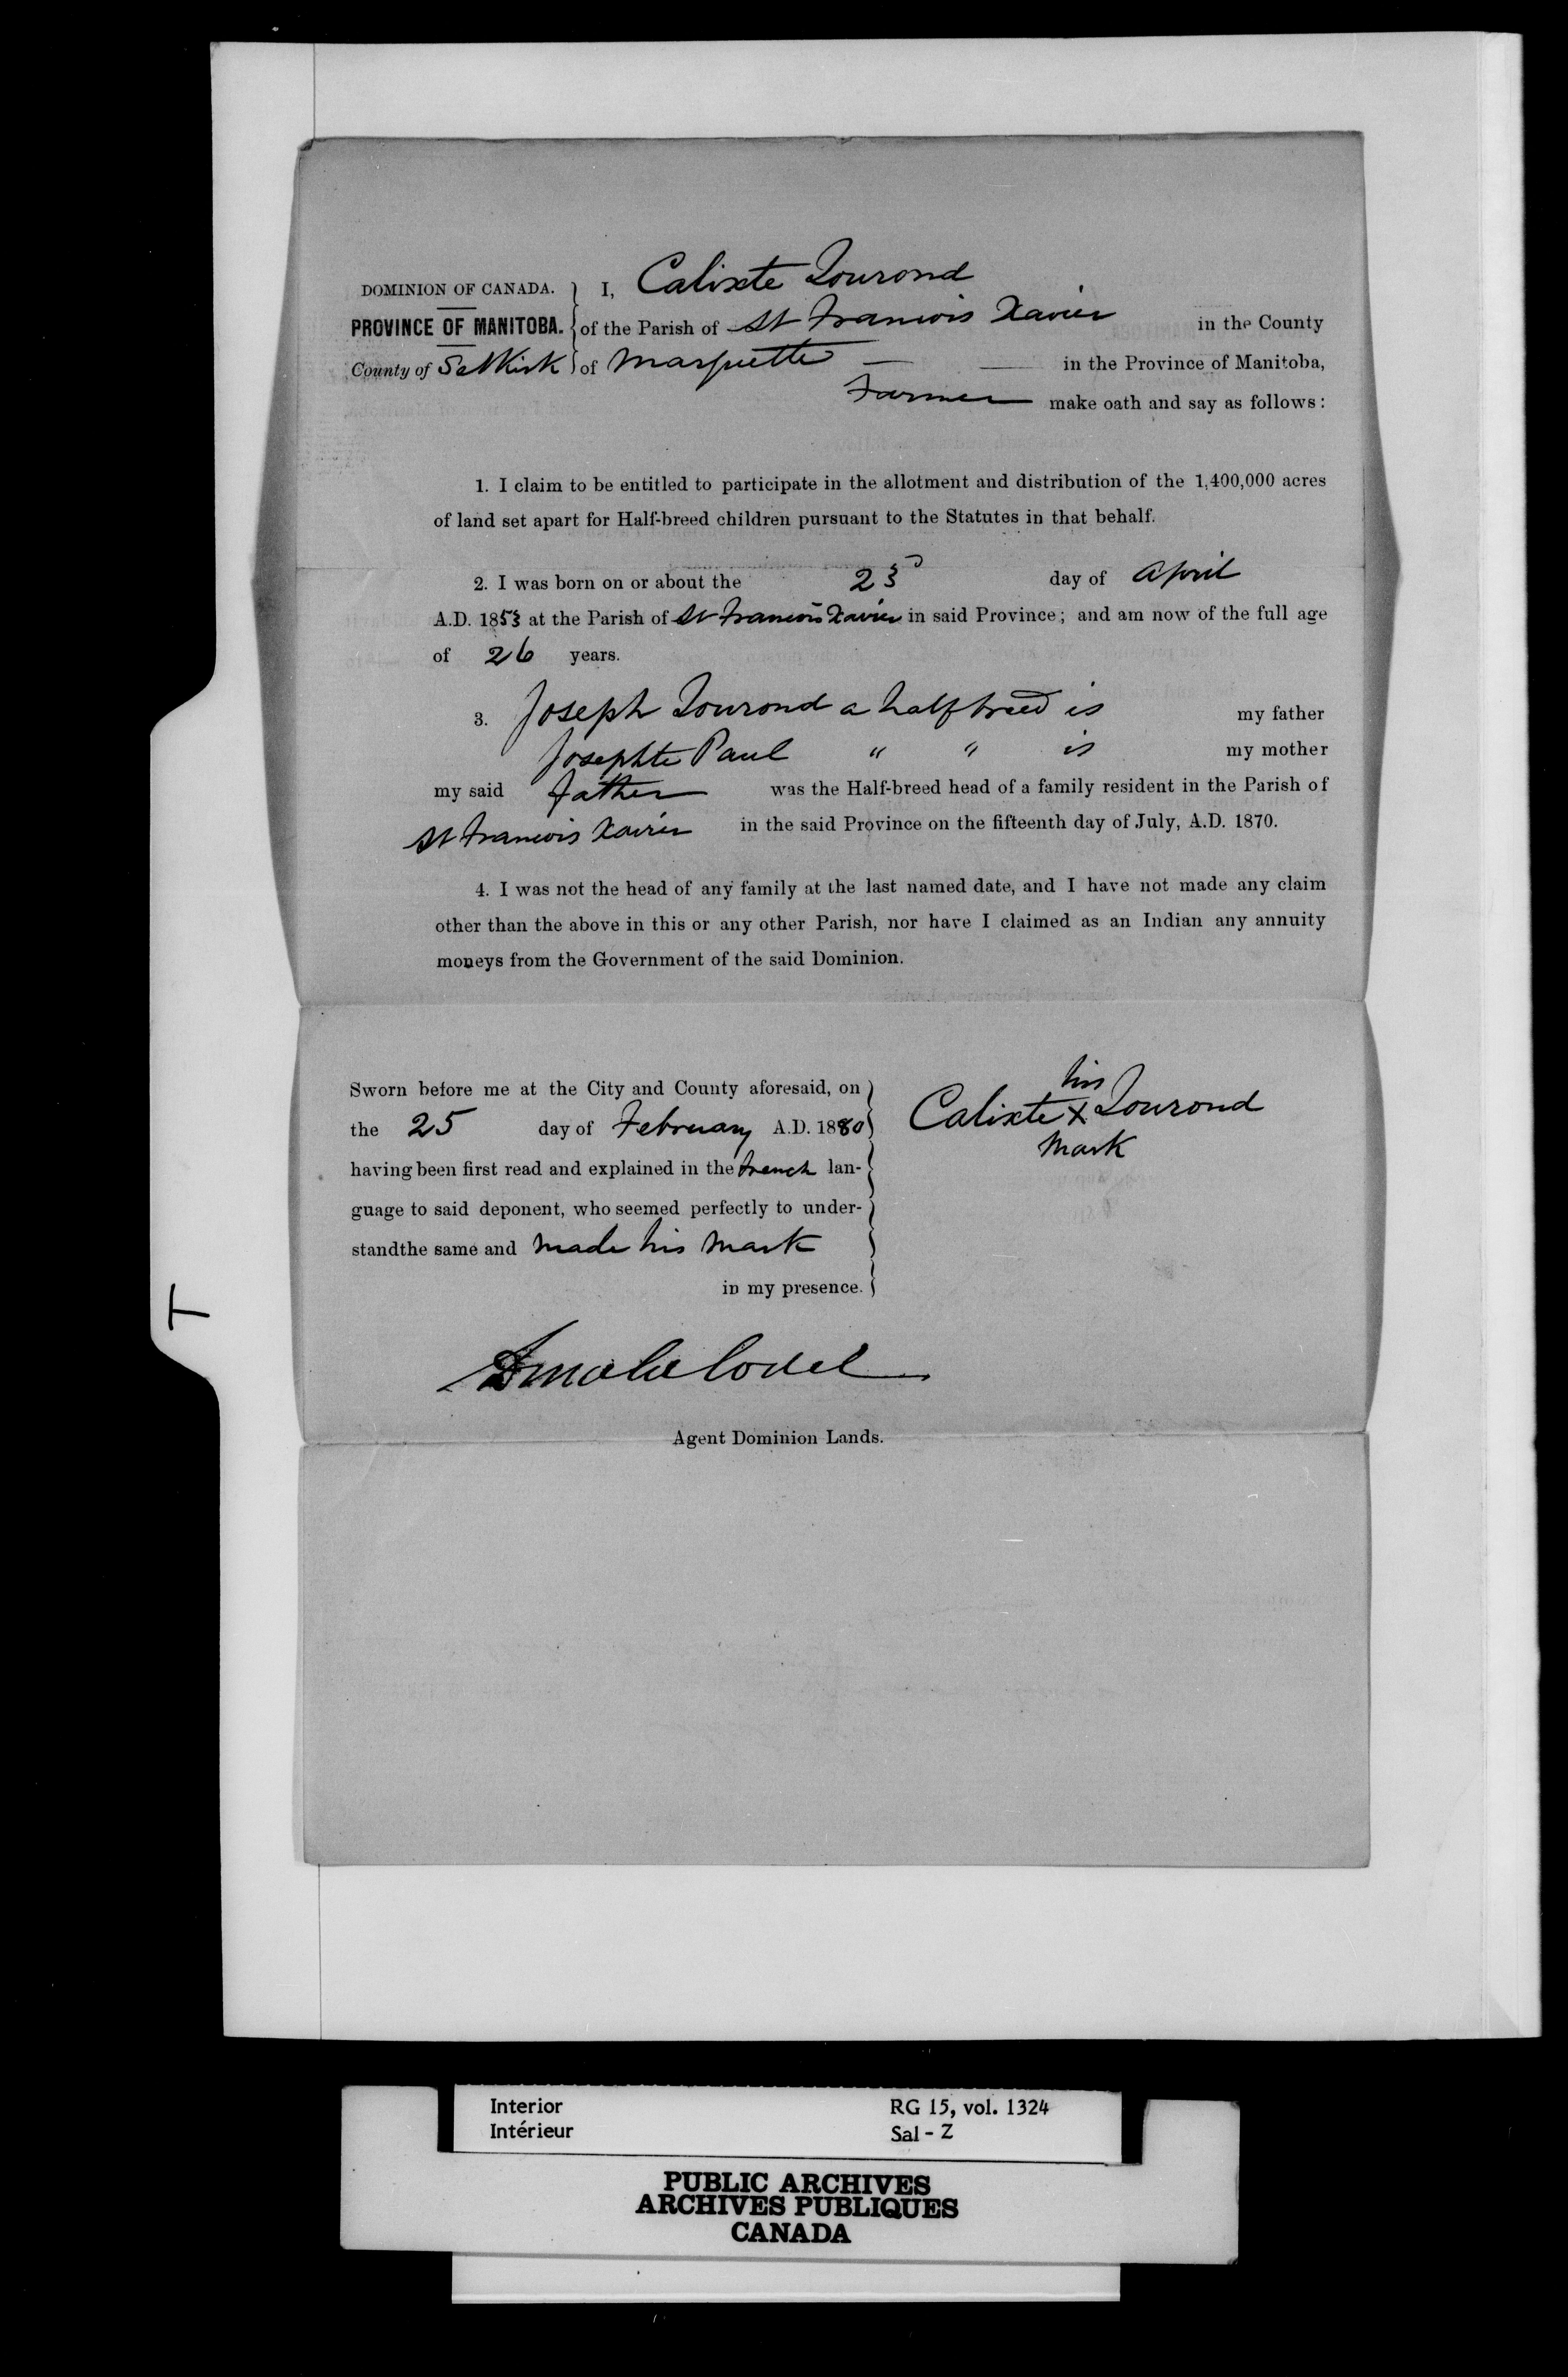 DOMINION OF CANADA. I, Calixte Tourond
PROVINCE OF MANITOBA. of the Parish of St Francois Xavier in the County
County of Selkirk of Marquette in the Province of Manitoba,
Farmer make oath and say as follows:
1. I claim to be entitled to participate in the allotment and distribution of the 1,400,000 acres
of land set apart for Half-breed children pursuant to the Statutes in that behalf.
2. I was born on or about the 23 day of April
A.D. 1853 at the Parish of St Francois Xavier in said Province; and am now of the full age
of 26 years.
3. Joseph Tourond a halfbreed is my father
Josephte Paul " " is my mother
my said father was the Half-breed head of a family resident in the Parish of
St Francois Xavier in the said Province on the fifteenth day of July, A.D. 1870.
4. I was not the head of any family at the last named date, and I have not made any claim
other than the above in this or any other Parish, nor have I claimed as an Indian any annuity
moneys from the Government of the said Dominion.
Sworn before me at the City and County aforesaid, on
the 25 day of February A.D. 1880
having been first read and explained in the french lan-
guage to said deponent, who seemed perfectly to under-
standthe same and made his mark
in my presence.
his
Calixte X Tourond
mark
Agent Dominion Lands.
T
Interior RG 15, vol. 1324
Intérieur Sal - Z
PUBLIC ARCHIVES
ARCHIVES PUBLIQUES
CANADA